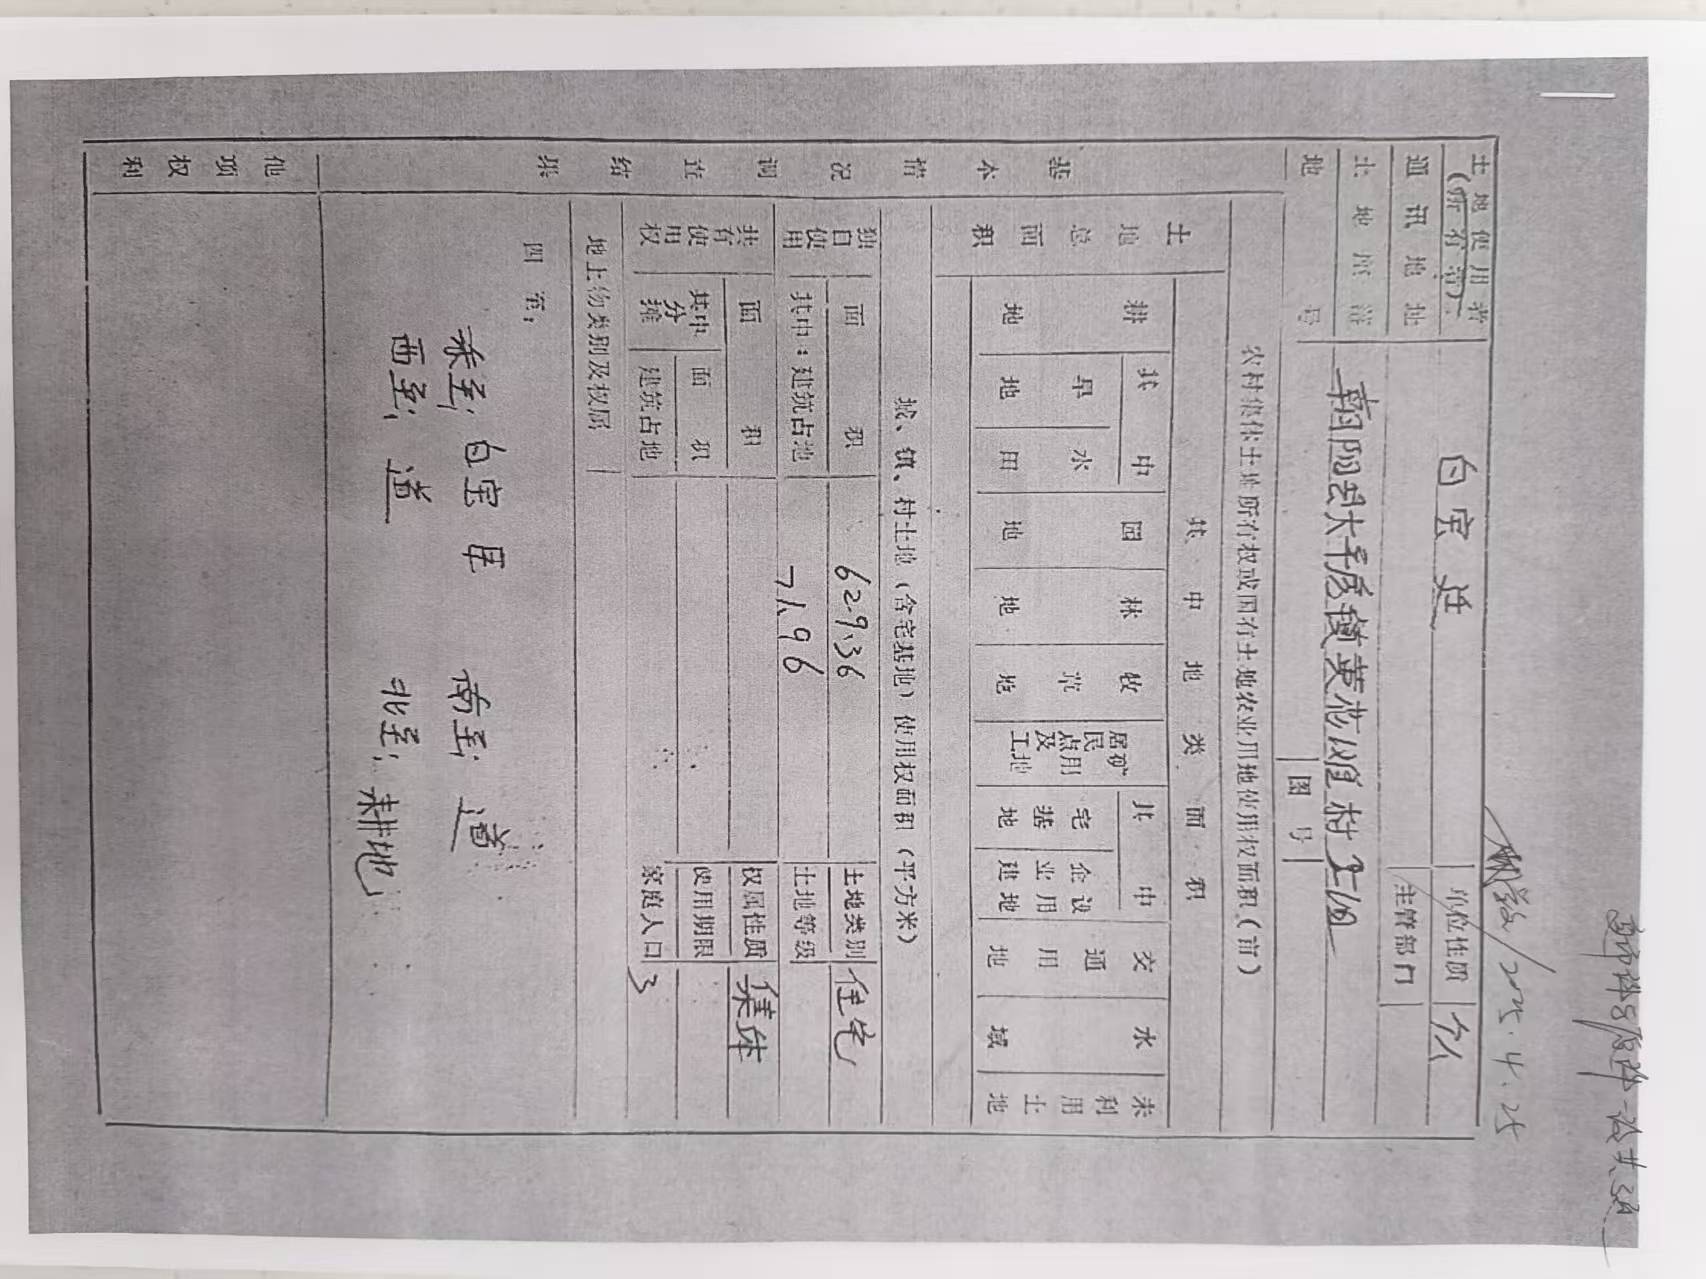 2025.4.25
土地使用者
(所有者)
白宝廷
单位性质
个人
通讯地址
主管部门
土地座落
朝阳县大平房镇黄花滩村
地号
图号
基本情况调查结果
农村集体土地所有权或国有土地农业用地使用权面积（亩）
土地总面积
其中地类面积
耕地
其中
旱地
水田
园地
林地
牧草地
居民点及
工矿用地
其中
宅基地
企业建设用地
交通用地
水域
未利用土地
城、镇、村土地（含宅基地）使用权面积（平方米）
独自使用
面积
629.36
土地类别
住宅
其中：建筑占地
71.96
土地等级
共有使用权
面积
权属性质
集体
其中分摊
面积
使用期限
建筑占地
家庭人口
3
地上物类别及权属
四至：
东至：白宝
南至：道
西至：道
北至：耕地
他项权利